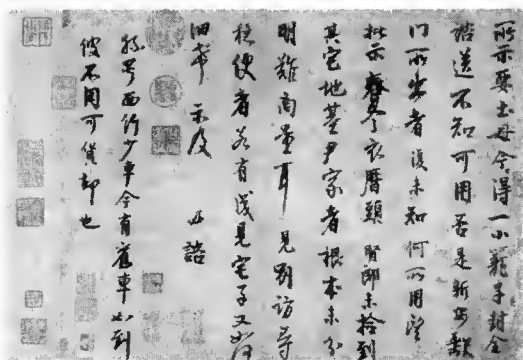 所示要土母今得一小籠子封全
諮送不知可用否是新安缺
門所出者復未知何所用望
批示春冬衣曆頭賢郎未檢到
其宅地基尹家者根本未分
明難商量耳見別訪尋
穩便者若有成見宅子又如何
細希示及 必諮
孫号西行少車今有舊車如到
彼不用可貨却也